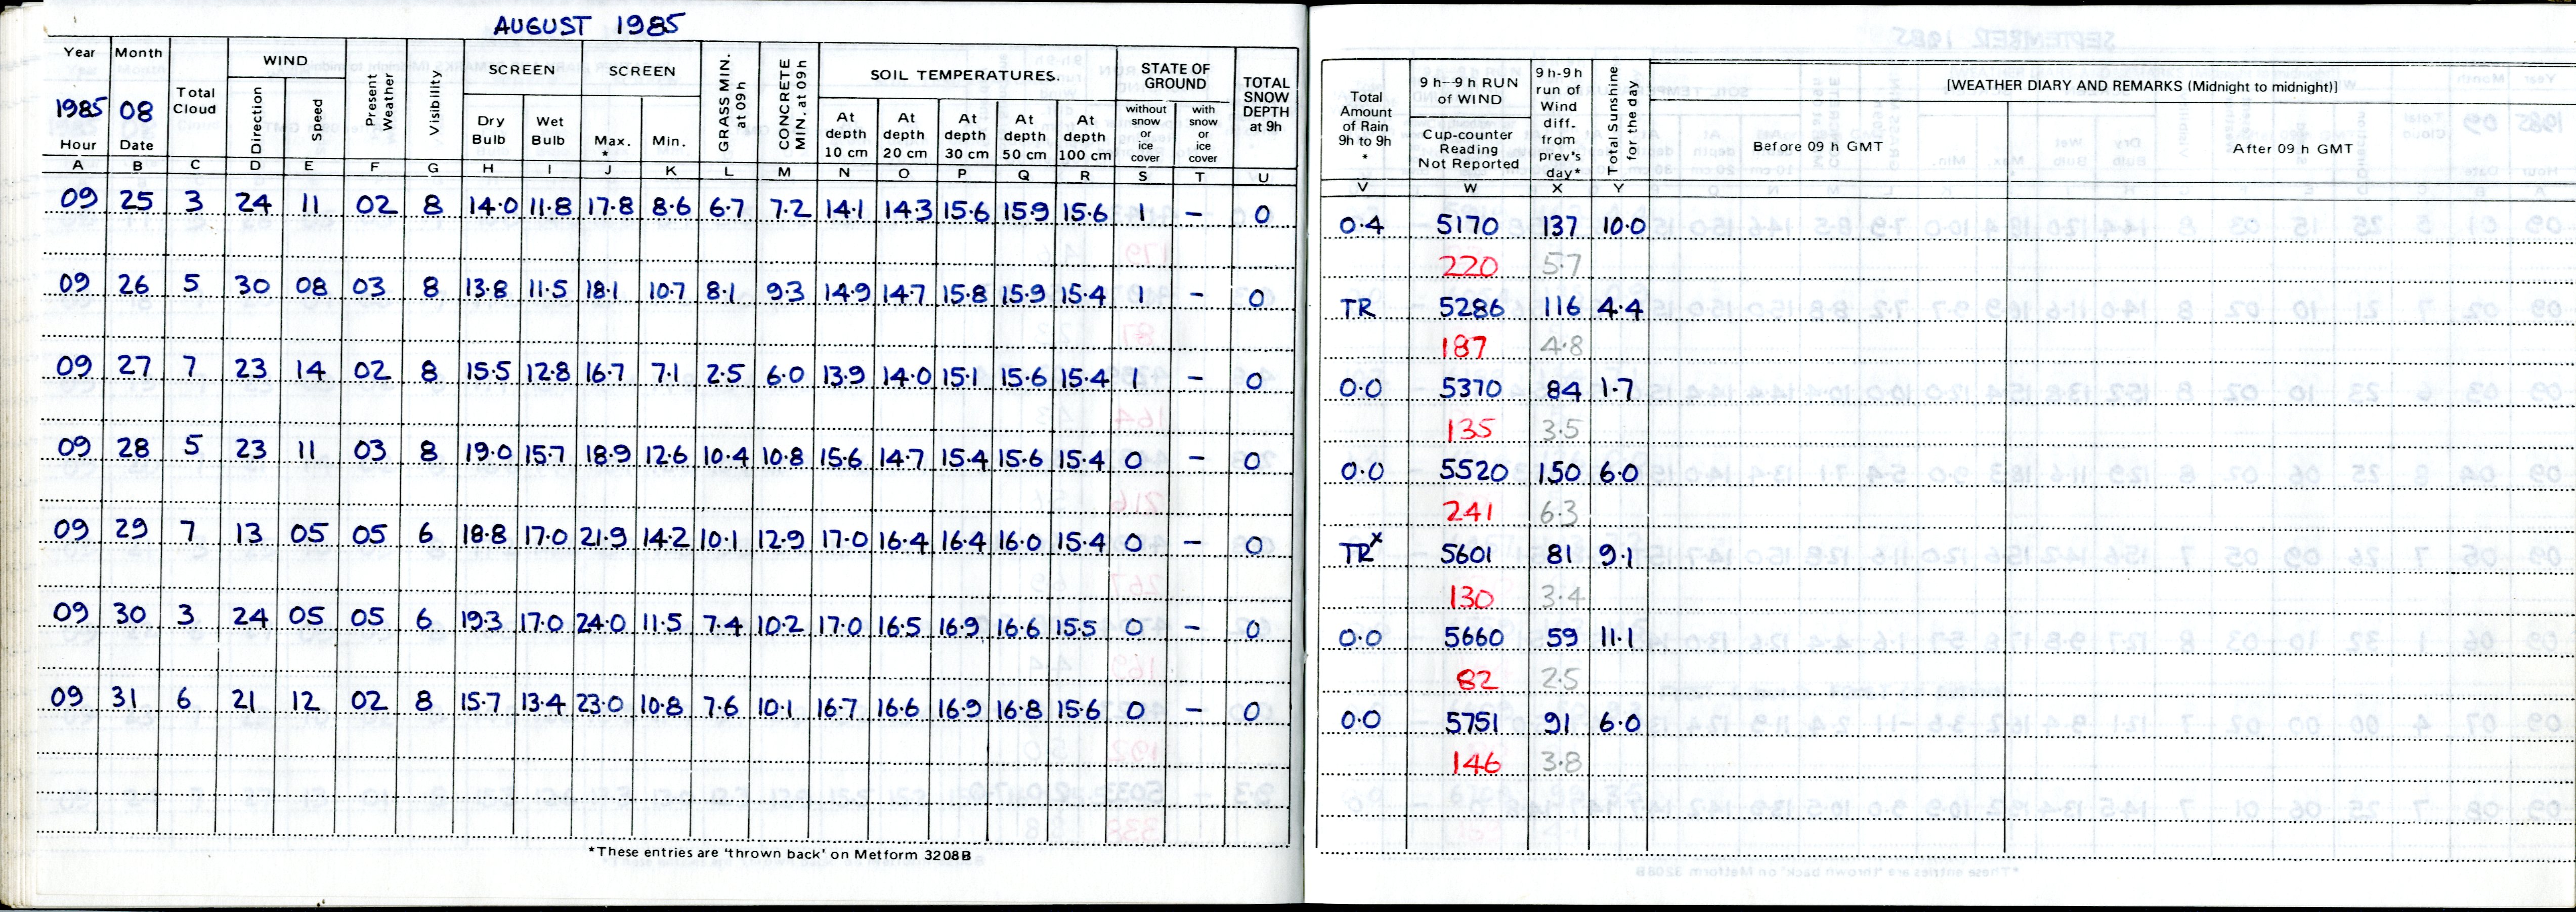 AUGUST 1985
Year Month Total Cloud WIND Present Weather Visibility SCREEN SCREEN GRASS MIN. at 09h CONCRETE MIN. at 09h SOIL TEMPERATURES. STATE OF GROUND TOTAL SNOW DEPTH at 9h
1985 08 Direction Speed Dry Bulb Wet Bulb Max. * Min. At depth 10 cm At depth 20 cm At depth 30 cm At depth 50 cm At depth 100 cm without snow or ice cover with snow or ice cover
Hour Date
A B C D E F G H I J K L M N O P Q R S T U
09 25 3 24 11 02 8 14.0 11.8 17.8 8.6 6.7 7.2 14.1 14.3 15.6 15.9 15.6 1 – 0
09 26 5 30 08 03 8 13.8 11.5 18.1 10.7 8.1 9.3 14.9 14.7 15.8 15.9 15.4 1 – 0
09 27 7 23 14 02 8 15.5 12.8 16.7 7.1 2.5 6.0 13.9 14.0 15.1 15.6 15.4 1 – 0
09 28 5 23 11 03 8 19.0 15.7 18.9 12.6 10.4 10.8 15.6 14.7 15.4 15.6 15.4 0 – 0
09 29 7 13 05 05 6 18.8 17.0 21.9 14.2 10.1 12.9 17.0 16.4 16.4 16.0 15.4 0 – 0
09 30 3 24 05 05 6 19.3 17.0 24.0 11.5 7.4 10.2 17.0 16.5 16.9 16.6 15.5 0 – 0
09 31 6 21 12 02 8 15.7 13.4 23.0 10.8 7.6 10.1 16.7 16.6 16.9 16.8 15.6 0 – 0
*These entries are 'thrown back' on Metform 3208B
Total Amount of Rain 9h to 9h * 9 h–9 h RUN of WIND Cup-counter Reading Not Reported 9 h-9h run of Wind diff. from prev's day* Total Sunshine for the day [WEATHER DIARY AND REMARKS (Midnight to midnight)]
Before 09 h GMT After 09 h GMT
V W X Y
0.4 5170 137 10.0
220 5.7
TR 5286 116 4.4
187 4.8
0.0 5370 84 1.7
135 3.5
0.0 5520 150 6.0
241 6.3
TRx 5601 81 9.1
130 3.4
0.0 5660 59 11.1
82 2.5
0.0 5751 91 6.0
146 3.8